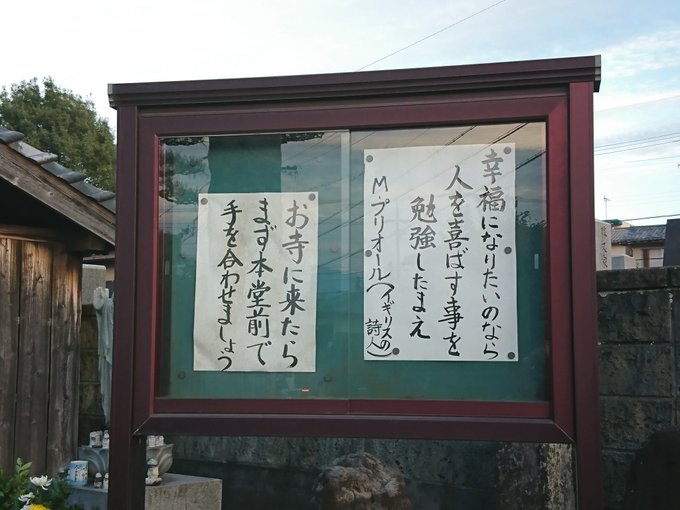 幸福になりたいのなら
人を喜ばす事を
勉強したまえ
M・プリオール(イギリスの詩人)
お寺に来たら
まず本堂前で
手を合わせましょう